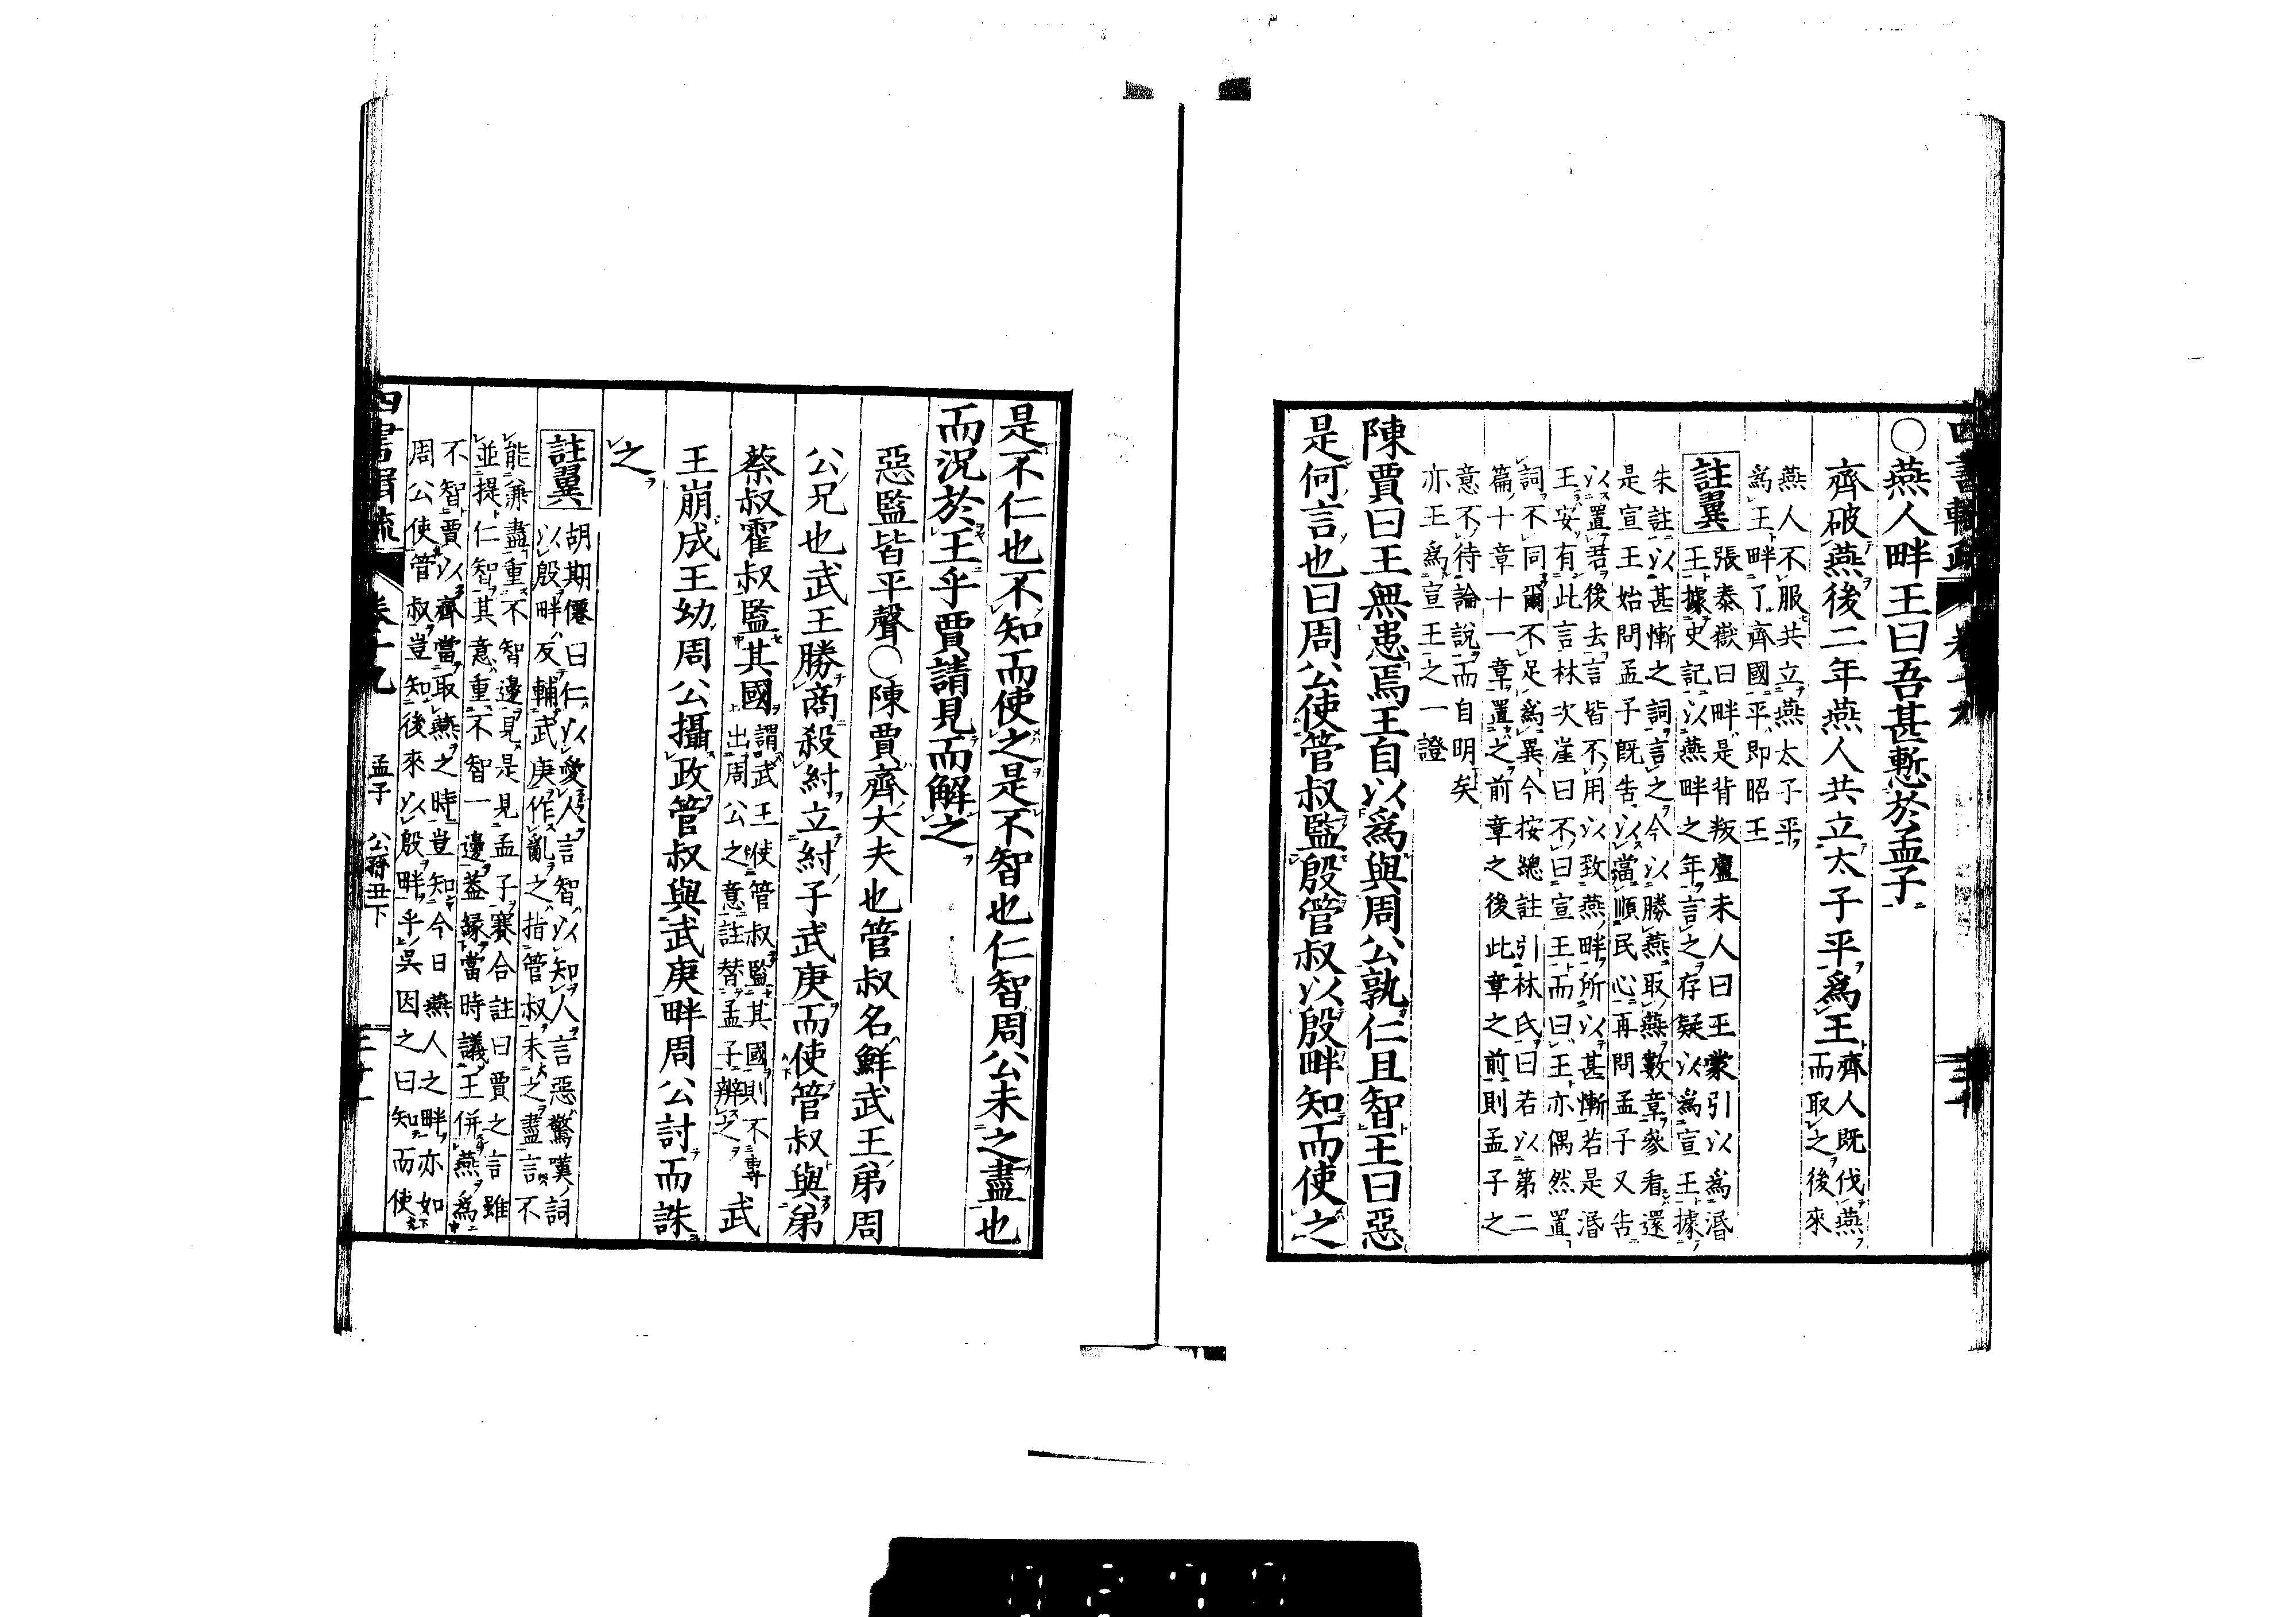 〇燕人畔王曰吾甚慙於孟子
齊破燕後二年燕人共立太子平爲王齊人既伐燕
而取之後來
燕人不服共立燕太子平
爲王畔了齊國平即昭王
註翼 張泰嶽曰畔是背叛盧未人曰王蒙引以爲湣
王據史記以燕畔之年言之存疑以爲宣王據
朱註以甚慚之詞言之今以勝燕取燕數章參看還
是宣王始問孟子既告以當順民心再問孟子又告
以置君後去言皆不用以致燕畔所以甚慚若是湣
王安有此言林次崖曰不曰宣王而曰王亦偶然置
詞不同爾不足爲異今按總註引林氏曰若以第二
篇十章十一章置之前章之後此章之前則孟子之
意不待論說而自明矣
亦王爲宣王之一證
陳賈曰王無患焉王自以爲與周公孰仁且智王曰惡
是何言也曰周公使管叔監殷管叔以殷畔知而使之
是不仁也不知而使之是不智也仁智周公未之盡也
而況於王乎賈請見而解之
惡監皆平聲〇陳賈齊大夫也管叔名鮮武王弟周
公兄也武王勝商殺紂立紂子武庚而使管叔與弟
蔡叔霍叔監其國謂武王使管叔監其國則不專
出周公之意註替孟子辨之武
王崩成王幼周公攝政管叔與武庚畔周公討而誅
之
註翼 胡期僊曰仁以愛人言智以知人言惡驚嘆詞
以殷畔反輔武庚作亂之指管叔未之盡言不
能兼盡重不智邊見是見孟子賽合註曰賈之言雖
並提仁智其意重不智一邊蓋緣當時議王併燕爲
不智賈以齊當取燕之時豈知今日燕人之畔亦如
周公使管叔豈知後來以殷畔乎吳因之曰知而使
四書輯疏 卷十九 孟子 公孫丑下